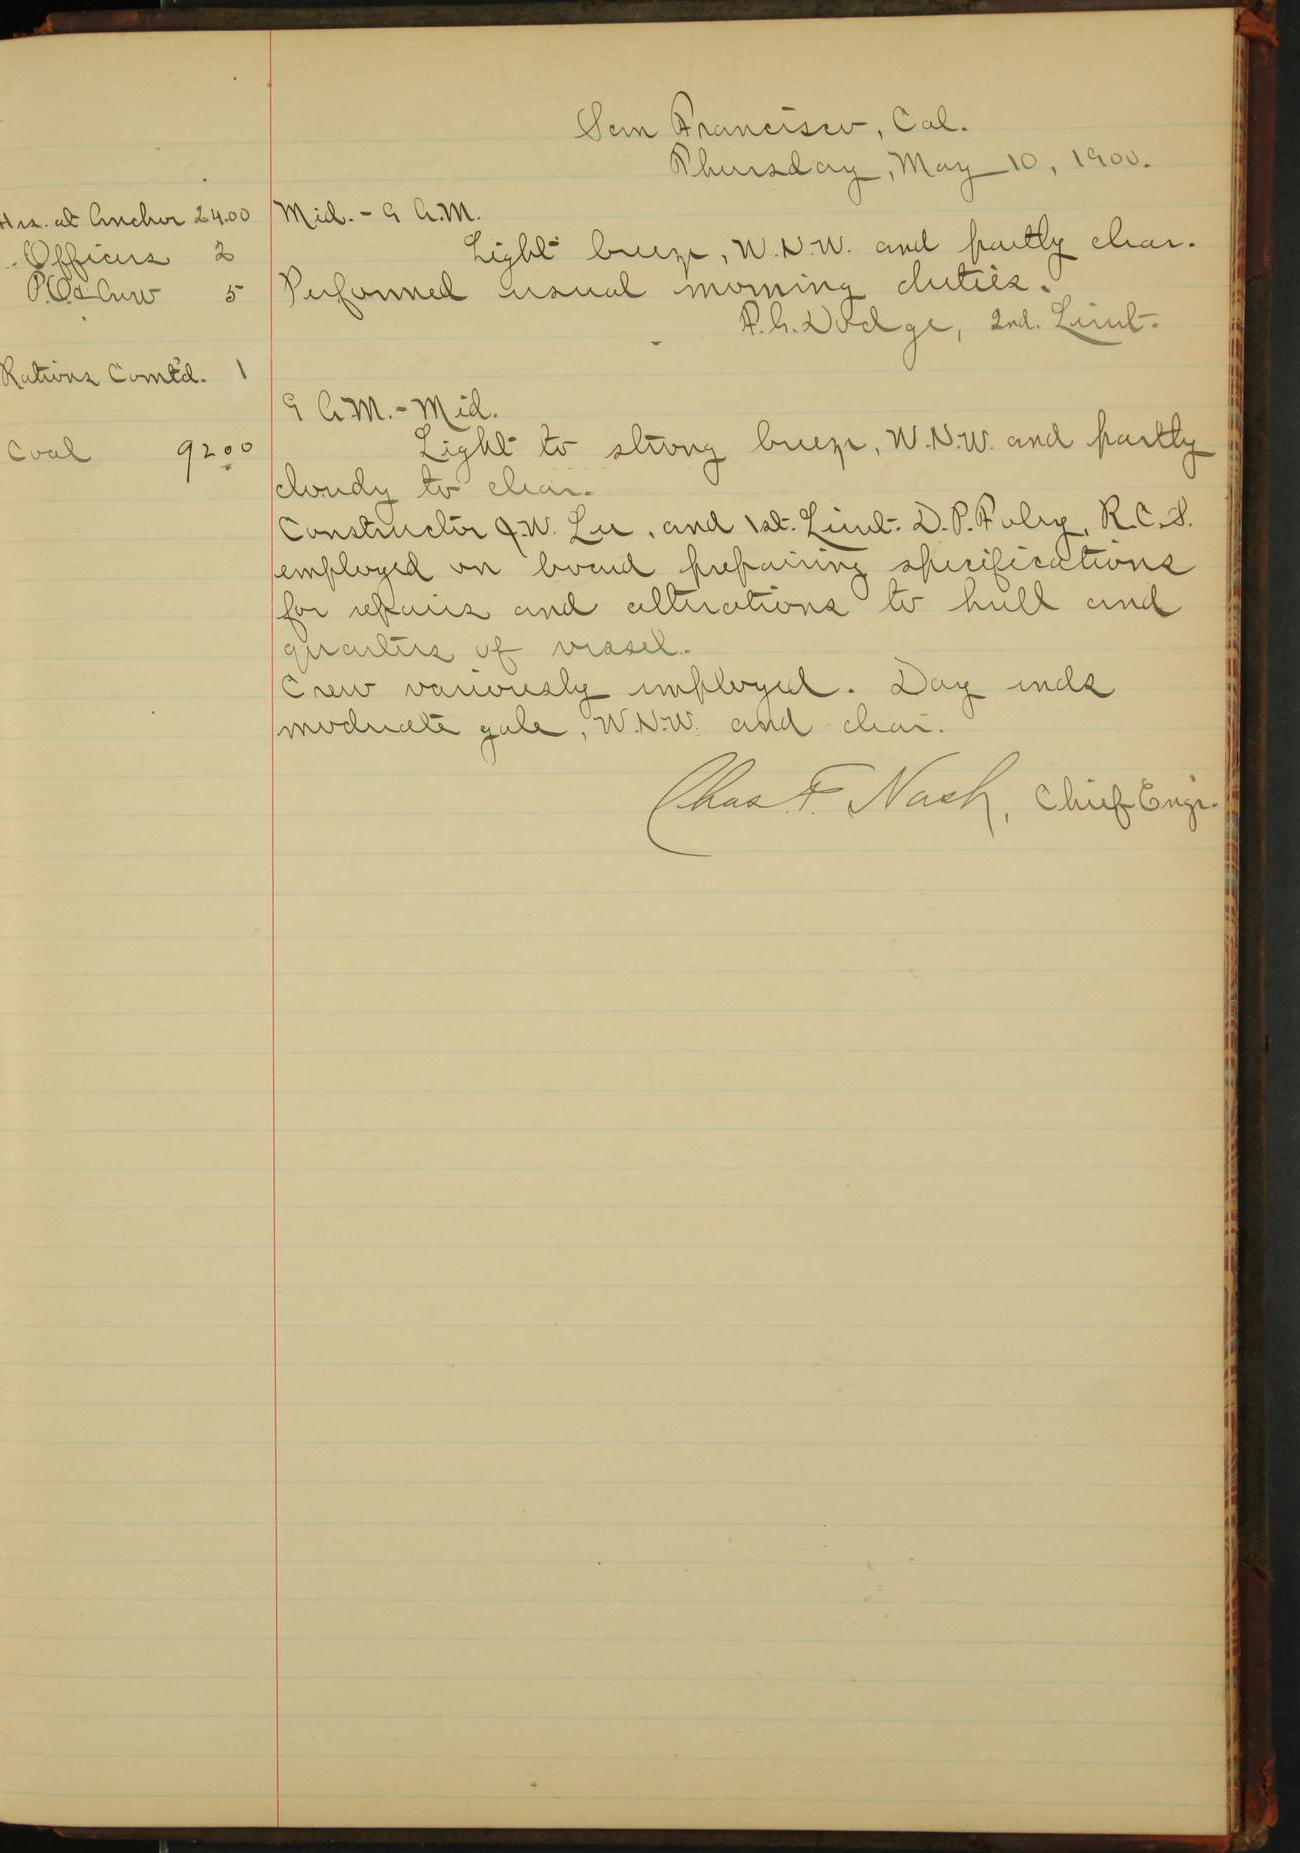 San Francisco, Cal.
Thursday, May 10, 1900.
Hrs. at Anchor 24.00
Officers 2
P.O. & Crew 5
Rations Com't'd. 1
Coal 92.00
Mid. - 9 A.M.
Light breeze, W.N.W. and partly clear.
Performed usual morning duties.
F.G. Dodge, 2nd. Lieut.
9 A.M. - Mid.
Light to strong breeze, W.N.W. and partly
cloudy to clear.
Constructor J.W. Lee, and 1st. Lieut. D.P. Foley, R.C.S.
employed on board preparing specifications
for repairs and alterations to hull and
quarters of vessel.
Crew variously employed. Day ends
moderate gale, W.N.W. and clear.
Chas. F. Nash, Chief Engr.